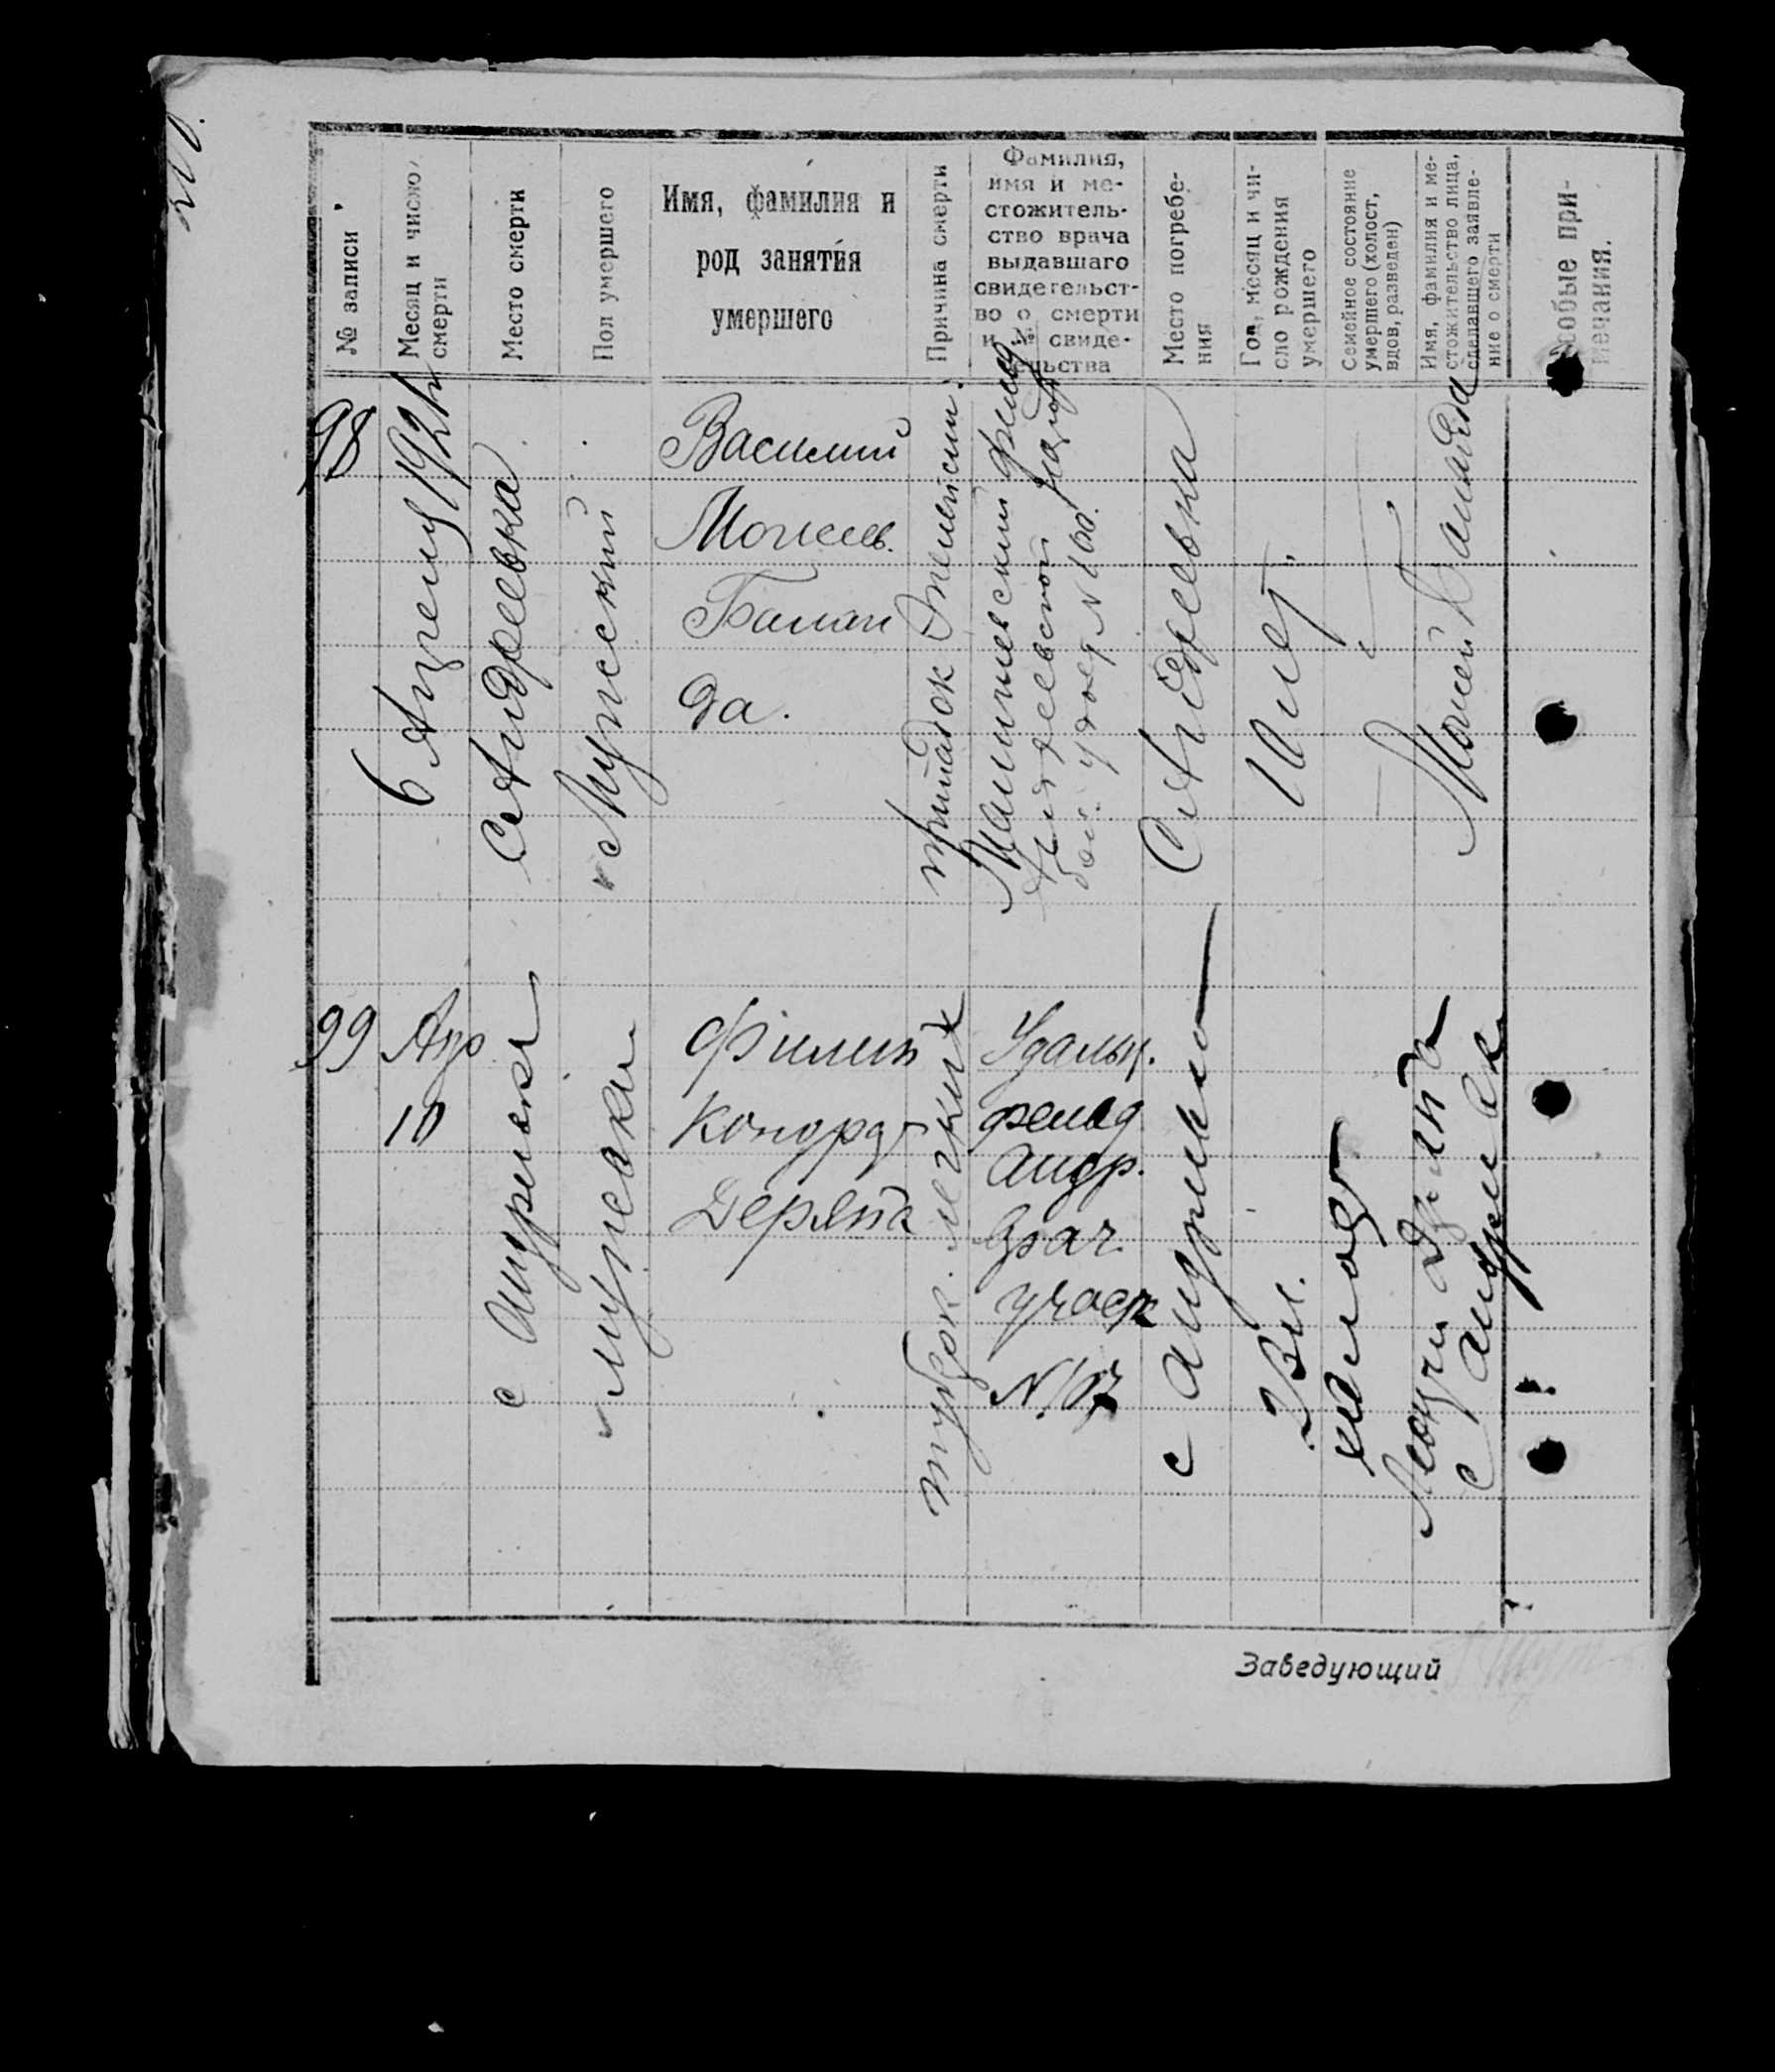 № записи
Месяц и число
смерти
Место смерти
Пол умершего
Имя, фамилия и
род занятия
умершего
Причина смерти
Фамилия,
имя и ме-
стожитель-
ство врача
выдавшаго
свидетельст-
во о смерти
и № свиде-
тельства
Место погребе-
ния
Год, месяц и чи-
сло рождения
умершего
Семейное состояние
умершего (холост,
вдов, разведен)
Имя, фамилия и ме-
стожительство лица,
сделавшего заявле-
ние о смерти
Особые при-
мечания.
98
6 Апреля 1921
С Андреевка
Мужеский
Василий
Моисеев.
Балан
да.
припадок Эпилепсии.
фельд
Андреевской
N 100.
С Андреевка
10 лет
Моисей Баланда
99
Апр
10
с Андреевка
мужеск
Филип
Конорат
Деряпа
туберк. легких
Удальц.
фельд
Андр.
Врач.
участк
N 107
с Андреевка
холост
Деряпа
с Андреевк
Заведующий